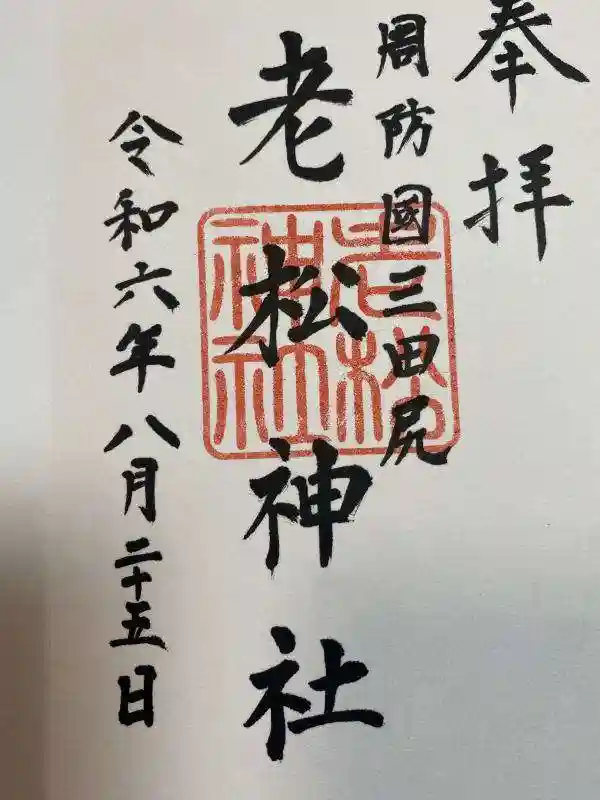 奉拝
周防國三田尻
老松神社
令和六年八月二十五日
老松
神社